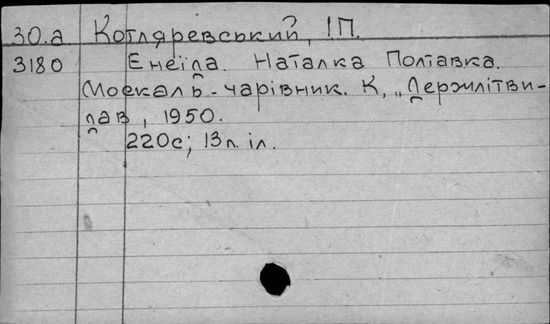 30.а Котляревський, І.П.
3180 Енеїда. Наталка Полтавка.
Москаль-чарівник. К, „Держлітви-
дав, 1950.
220с; 13п. іл.